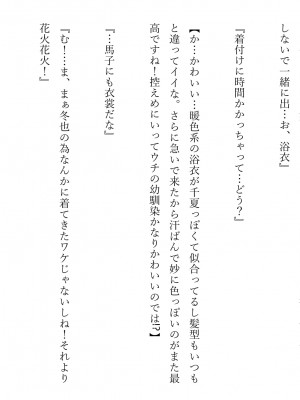 しないで一緒に出…お、浴衣』
『着付けに時間かかっちゃって…どう？』
【か…かわいい…暖色系の浴衣が千夏っぽくて似合ってるし髪型もいつも
と違ってイイな。さらに急いで来たから汗ばんで妙に色っぽいのがまた最
高ですね！控えめにいってウチの幼馴染かなりかわいいのでは⁉】
『…馬子にも衣裳だな』
『む！…ま、まぁ冬也の為なんかに着てきたワケじゃないしね！それより
花火花火！』